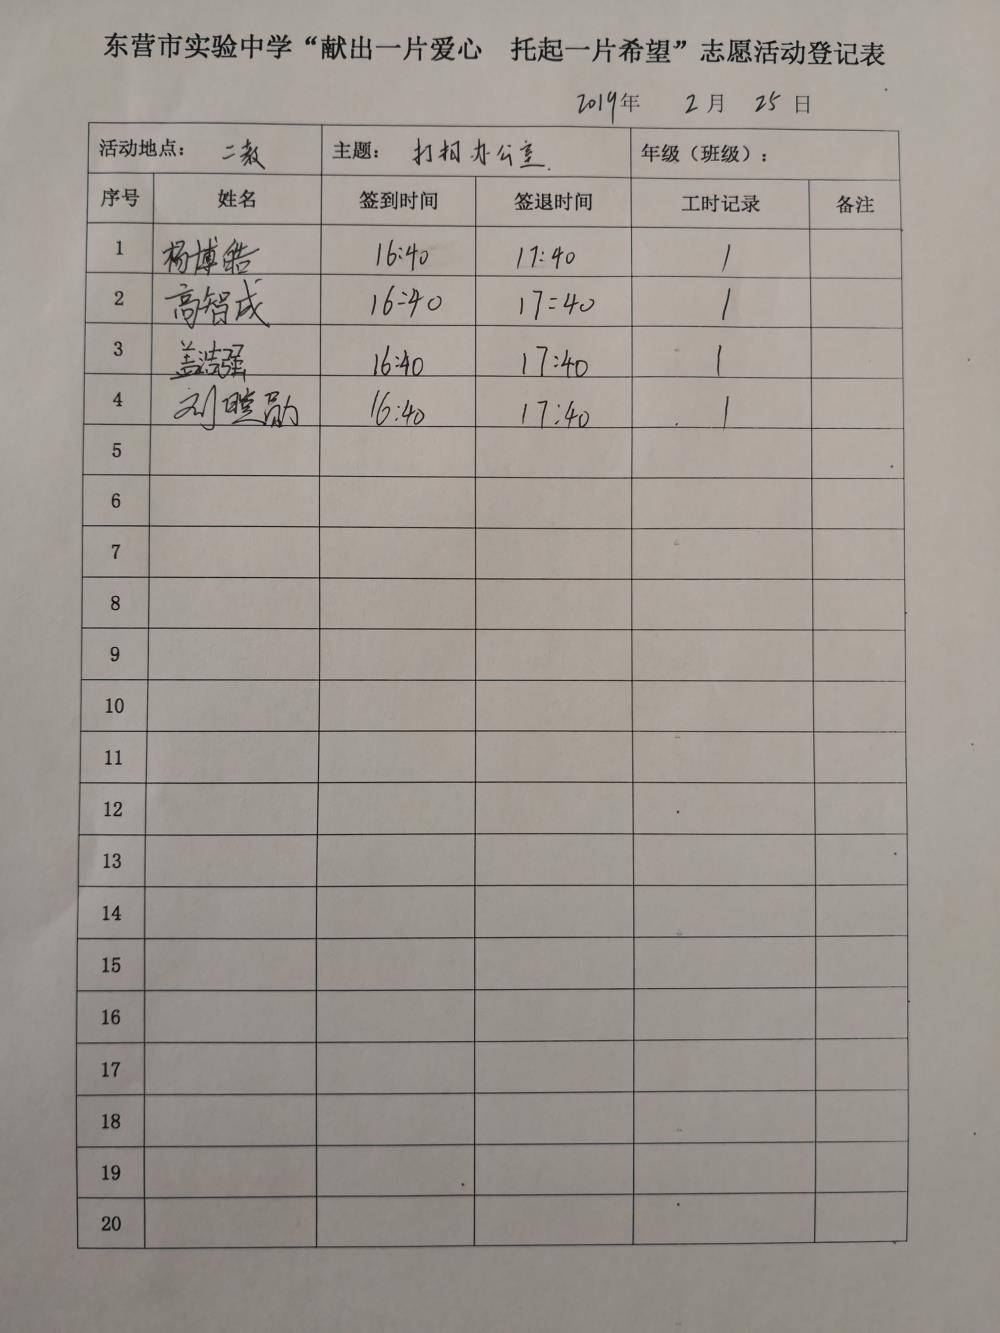 东营市实验中学“献出一片爱心 托起一片希望”志愿活动登记表
2019年 2月 25日
活动地点： 二教 主题： 打扫办公室. 年级（班级）：
序号 姓名 签到时间 签退时间 工时记录 备注
1 杨博皓 16:40 17:40 1
2 高智成 16:40 17:40 1
3 盖浩强 16:40 17:40 1
4 刘 16:40 17:40 1
5
6
7
8
9
10
11
12
13
14
15
16
17
18
19
20